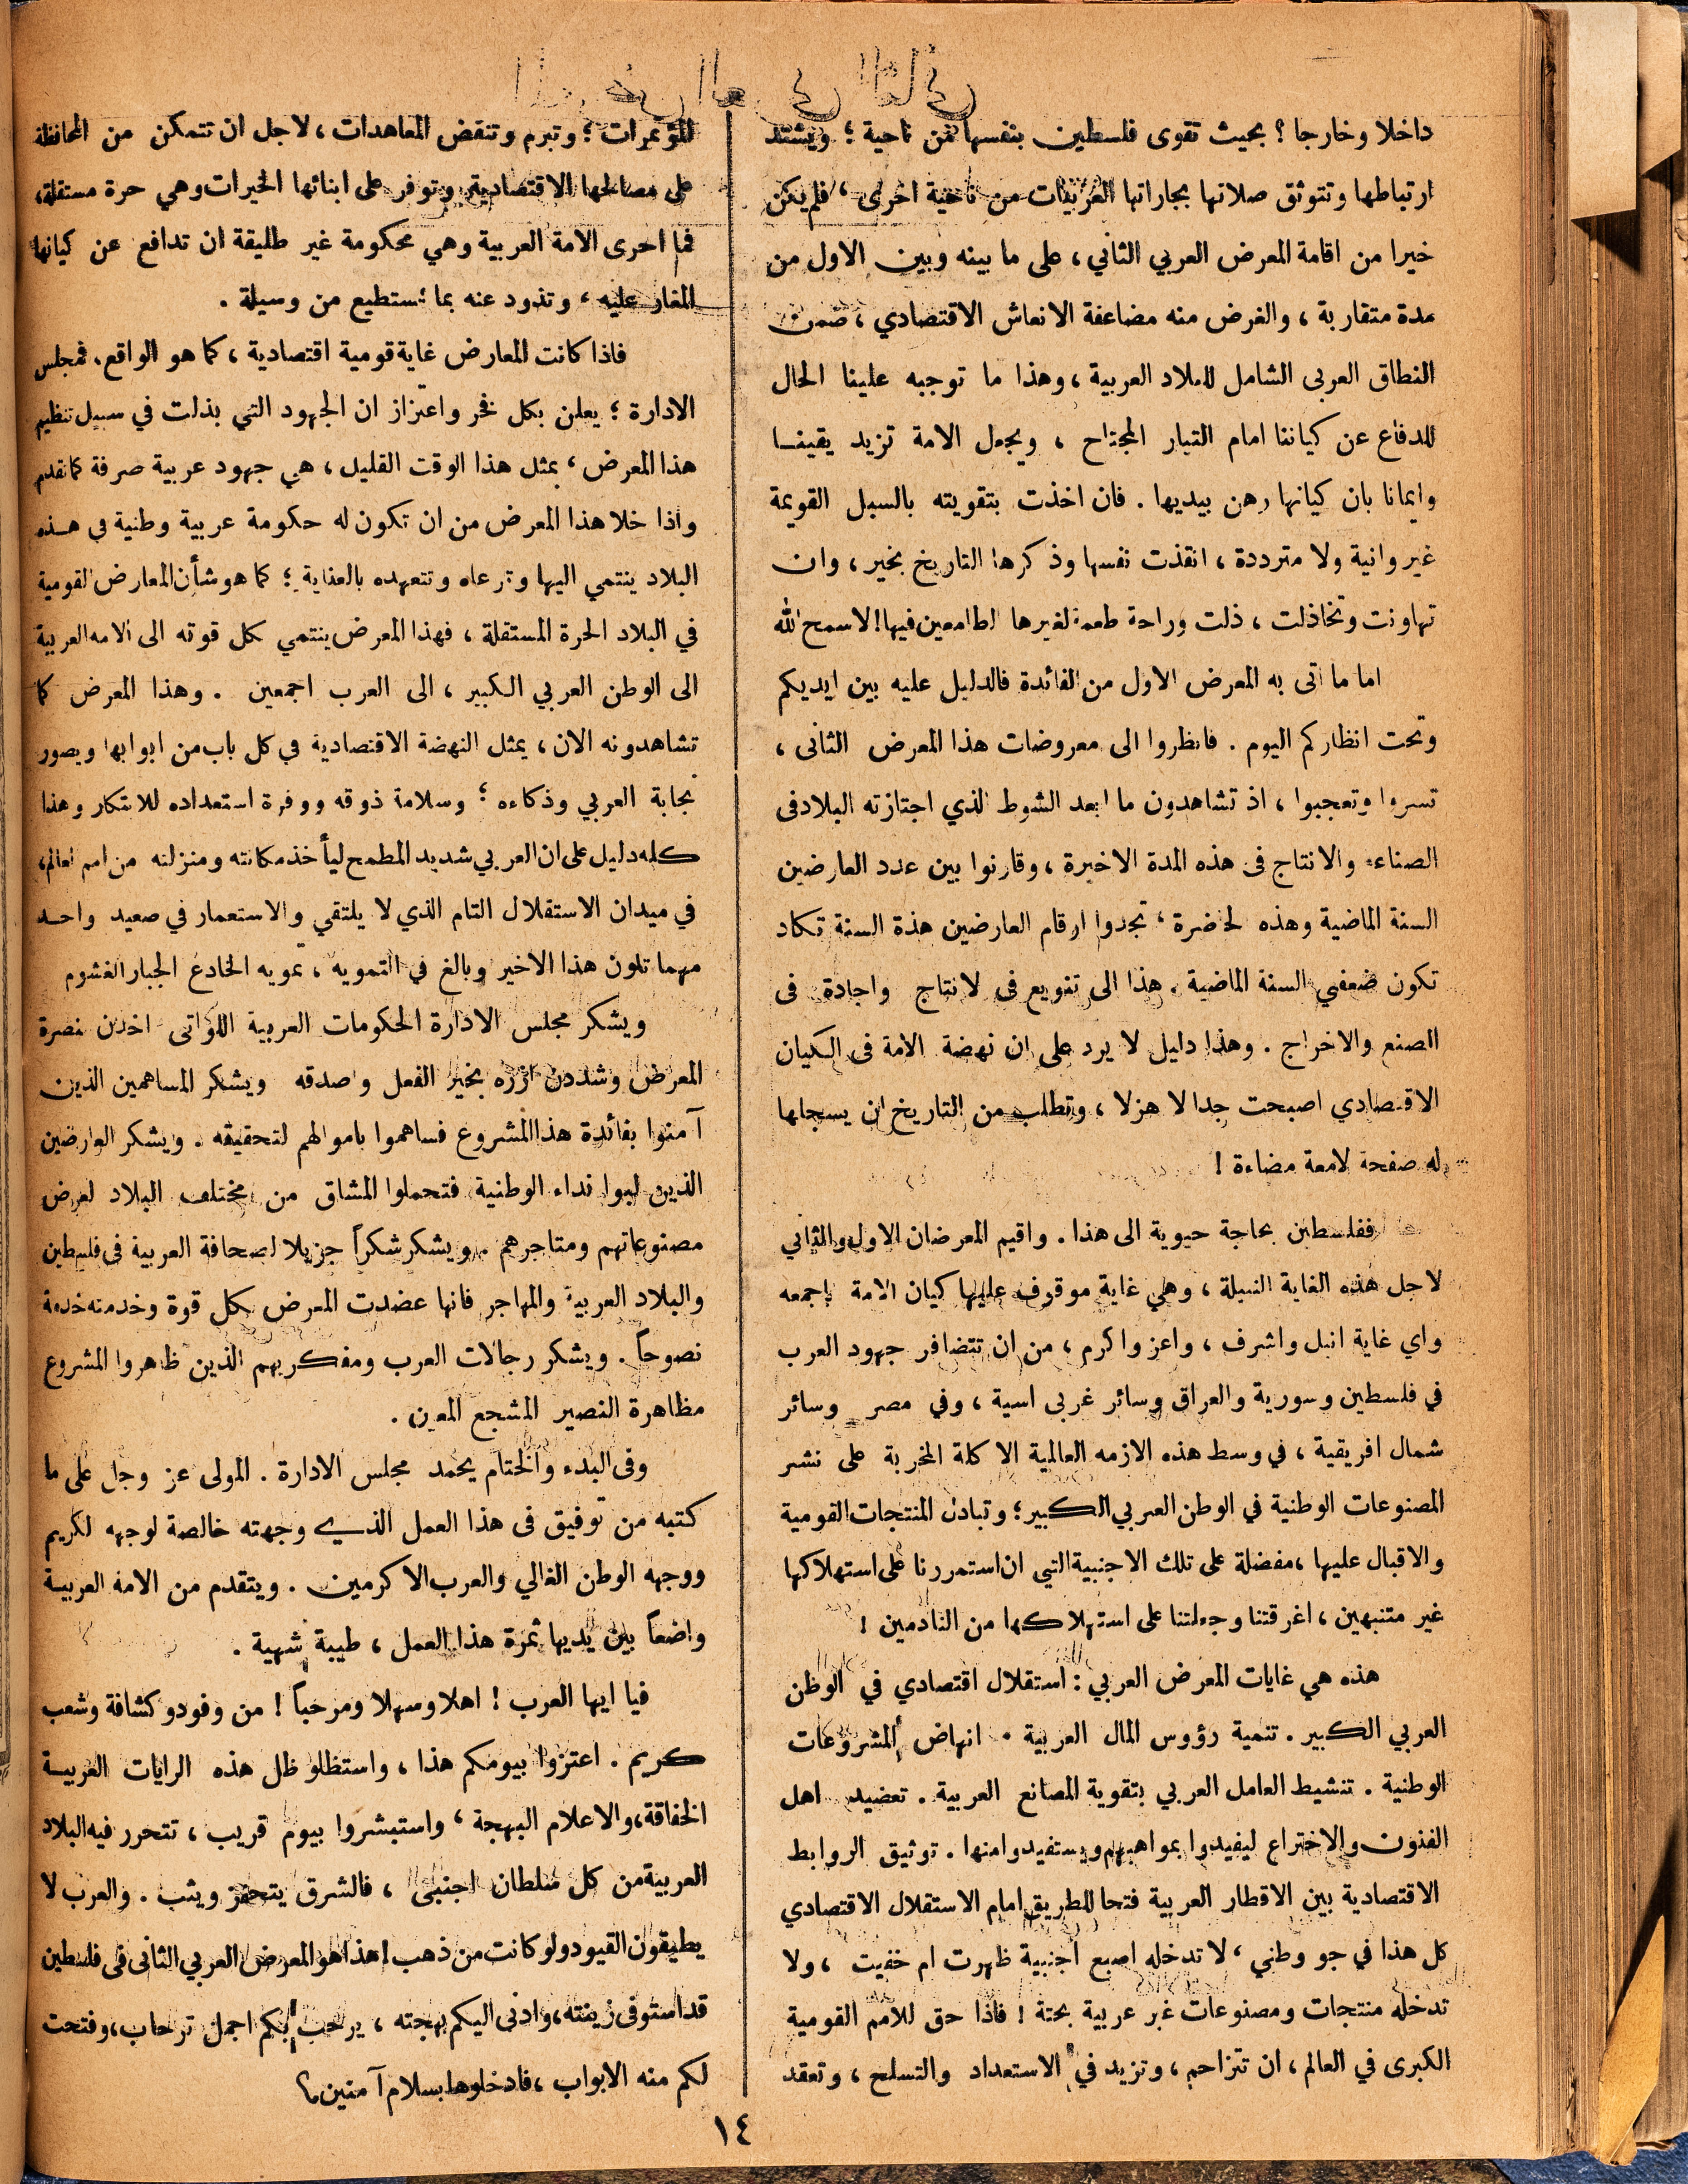 داخلا وخارجا ؟ بحيث تقوى فلسطين بنفسها من ناحية ؛ ويشتد
ارتباطها وتتوثق صلاتها بجاراتها العربيات من ناحية اخرى ، فلم يكن
خيرا من اقامة المعرض العربي الثاني ، على ما بينه وبين الاول من
مدة متقاربة ، والغرض منه مضاعفة الانعاش الاقتصادي ، ضمن
النطاق العربى الشامل للبلاد العربية ، وهذا ما توجبه علينا الحال
للدفاع عن كياننا امام التيار المجتاح ، ويجعل الامة تزيد يقينا
وايمانا بان كيانها رهن بيديها . فان اخذت بتقويته بالسبل القويمة
غير وانية ولا مترددة ، انقذت نفسها وذكرها التاريخ بخير ، وان
تهاونت وتخاذلت ، ذلت وراحة طعمة لغيرها الطامعين فيها ! لا سمح الله
اما ما اتى به المعرض الاول من الفائدة فالدليل عليه بين ايديكم
وتحت انظاركم اليوم . فانظروا الى معروضات هذا المعرض الثانى ،
تسروا وتعجبوا ، اذ تشاهدون ما ابعد الشوط الذي اجتازته البلاد فى
الصناعة والانتاج فى هذه المدة الاخيرة ، وقارنوا بين عدد العارضين
السنة الماضية وهذه لحاضرة ، تجدوا ارقام العارضين هذة السنة تكاد
تكون ضعفي السنة الماضية . هذا الى تنويع فى لانتاج واجادة فى
الصنع والاخراج . وهذا دليل لا يرد على ان نهضة الامة فى الكيان
الاقتصادي اصبحت جدا لا هزلا ، وتطلب من التاريخ ان يسجلها
له صفحة لامعة مضاءة !
ففلسطين بحاجة حيوية الى هذا . واقيم المعرضان الاول والثاني
لاجل هذه الغاية النبيلة ، وهي غاية موقوف عليها كيان الامة باجمعه
واي غاية انبل واشرف ، واعز واكرم ، من ان تتضافر جهود العرب
في فلسطين وسورية والعراق وسائر غربى اسية ، وفي مصر وسائر
شمال افريقية ، في وسط هذه الازمه العالمية الاكلة المخربة على نشر
المصنوعات الوطنية في الوطن العربي الكبير ؛ وتبادل المنتجات القومية
والاقبال عليها ، مفضلة على تلك الاجنبية التي ان استمررنا على استهلاكها
غير متنبهين ، اغرقتنا وجعلتنا على استهلاكها من النادمين !
هذه هي غايات المعرض العربي : استقلال اقتصادي في الوظن
العربي الكبير . تنمية رؤوس المال العربية . انهاض المشروعات
الوطنية . تنشيط العامل العربي بتقوية المصانع العربية . تعضيد اهل
الفنون والاختراع ليفيدوا بمواهبهم ويستفيدوا منها . توثيق الروابط
الاقتصادية بين الاقطار العربية فتحا للطريق امام الاستقلال الاقتصادي
كل هذا في جو وطني ، لا تدخله اصبع اجنبية ظهرت ام خفيت ، ولا
تدخله منتجات ومصنوعات غير عربية بحتة ! فاذا حق للامم القومية
الكبرى في العالم ، ان تتزاحم ، وتزيد في الاستعداد والتسلح ، وتعقد
المؤتمرات ؛ وتبرم وتنقض المعاهدات ، لاجل ان تتمكن من المحافظة
على مصالحها الاقتصادية وتوفر على ابنائها الخيرات وهي حرة مستقلة ،
فما احرى الامة العربية وهي محكومة غير طليقة ان تدافع عن كيانها
المغار عليه ، وتذود عنه بما تستطيع من وسيلة .
فاذا كانت المعارض غاية قومية اقتصادية ، كما هو الواقع ، فمجلس
الادارة ؛ يعلن بكل فخر واعتزاز ان الجهود التي بذلت في سبيل تنظيم
هذا المعرض ، بمثل هذا الوقت القليل ، هي جهود عربية صرفة كما تقدم
واذا خلا هذا المعرض من ان تكون له حكومة عربية وطنية في هذه
البلاد ينتمي اليها وترعاه وتتعهده بالعناية ؛ كما هو شأن المعارض القومية
في البلاد الحرة المستقلة ، فهذا المعرض ينتمي بكل قوته الى الامه العربية
الى الوطن العربي الكبير ، الى العرب اجمعين . وهذا المعرض كما
تشاهدونه الان ، يمثل النهضة الاقتصادية في كل باب من ابوابها ويصور
نجابة العربي وذكاءه ؛ وسلامة ذوقه ووفرة استعداده للابتكار وهذا
كله دليل على ان العربي شديد المطمح ليأخذ مكانته ومنزلته من امم العالم ،
في ميدان الاستقلال التام الذي لا يلتقي والاستعمار في صعيد واحد
مهما تلون هذا الاخير وبالغ في التمويه ، تمويه الخادع الجبار الغشوم
ويشكر مجلس الادارة الحكومات العربية اللواتى اخذن نصرة
المعرض وشددن ازره بخير الفعل واصدقه ويشكر المساهمين الذين
آمنوا بفائدة هذا المشروع فساهموا باموالهم لتحقيقه . ويشكر العارضين
الذين لبوا نداء الوطنية فتحملوا المشاق من مختلف البلاد لعرض
مصنوعاتهم ومتاجرهم . ويشكر شكراً جزيلا الصحافة العربية فى فلسطين
والبلاد العربية والمهاجر فانها عضدت المعرض بكل قوة وخدمته خدمة
نصوحاً . ويشكر رجالات العرب ومفكريهم الذين ظاهروا المشروع
مظاهرة النصير المشجع المعين .
وفى البدء والختام يحمد مجلس الادارة . المولى عز وجل على ما
كتبه من توفيق فى هذا العمل الذي وجهته خالصة لوجهه لكريم
ووجهه الوطن الغالي والعرب الاكرمين . ويتقدم من الامة العربية
واضعاً بين يديها ثمرة هذا العمل ، طيبة شهية .
فيا ايها العرب ! اهلا وسهلا ومرحباً ! من وفود وكشافة وشعب
كريم . اعتزوا بيومكم هذا ، واستظلو ظل هذه الرايات العربية
الخفاقة ، والاعلام البهجة ، واستبشروا بيوم قريب ، تتحرر فيه البلاد
العربية من كل سلطان اجنبى ، فالشرق يتحفز ويثب . والعرب لا
يطيقون القيود ولو كانت من ذهب ! هذا هو المعرض العربي الثانى فى فلسطين
قد استوفى زينته ، وادنى اليكم بهجته ، يرحب بكم اجمل ترحاب ، وفتحت
لكم منه الابواب ، فادخلوها بسلام آمنين ؟
١٤